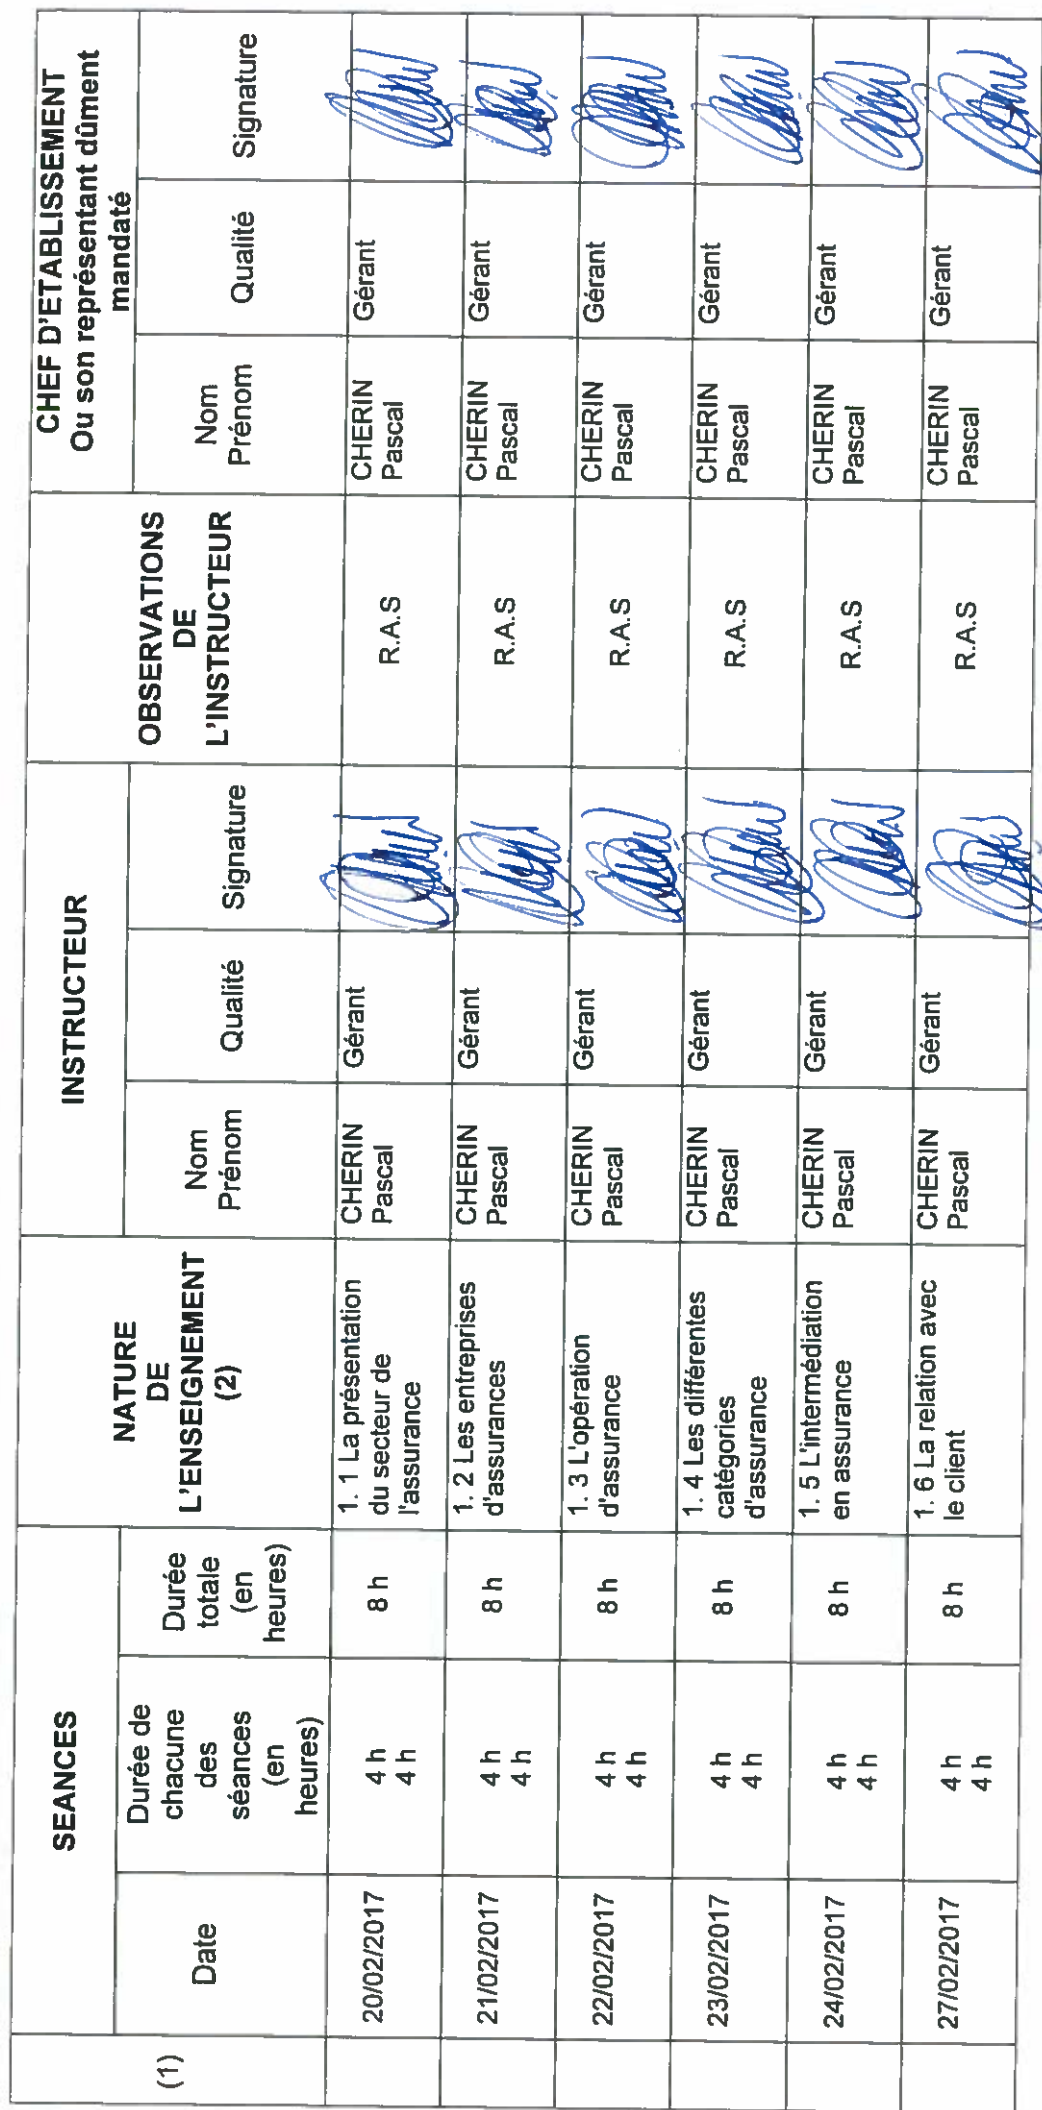 (1)
SEANCES
Date
Durée de
chacune
des
séances
(en
heures)
Durée
totale
(en
heures)
NATURE
DE
L'ENSEIGNEMENT
(2)
INSTRUCTEUR
Nom
Prénom
Qualité
Signature
OBSERVATIONS
DE
L'INSTRUCTEUR
CHEF D'ETABLISSEMENT
Ou son représentant dûment
mandaté
Nom
Prénom
Qualité
Signature
20/02/2017
4 h
4 h
8 h
1. 1 La présentation
du secteur de
l'assurance
CHERIN
Pascal
Gérant
R.A.S
CHERIN
Pascal
Gérant
21/02/2017
4 h
4 h
8 h
1. 2 Les entreprises
d'assurances
CHERIN
Pascal
Gérant
R.A.S
CHERIN
Pascal
Gérant
22/02/2017
4 h
4 h
8 h
1. 3 L'opération
d'assurance
CHERIN
Pascal
Gérant
R.A.S
CHERIN
Pascal
Gérant
23/02/2017
4 h
4 h
8 h
1. 4 Les différentes
catégories
d'assurance
CHERIN
Pascal
Gérant
R.A.S
CHERIN
Pascal
Gérant
24/02/2017
4 h
4 h
8 h
1. 5 L'intermédiation
en assurance
CHERIN
Pascal
Gérant
R.A.S
CHERIN
Pascal
Gérant
27/02/2017
4 h
4 h
8 h
1. 6 La relation avec
le client
CHERIN
Pascal
Gérant
R.A.S
CHERIN
Pascal
Gérant